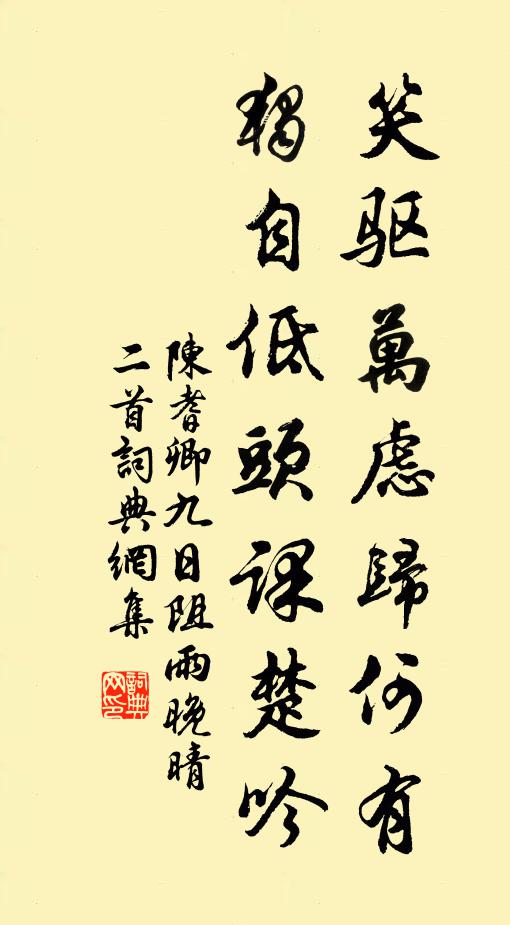 笑驱萬慮歸何有
獨自低頭課楚吟
陳耆卿九日阻雨晚晴
二首詞典網集
詞典網印